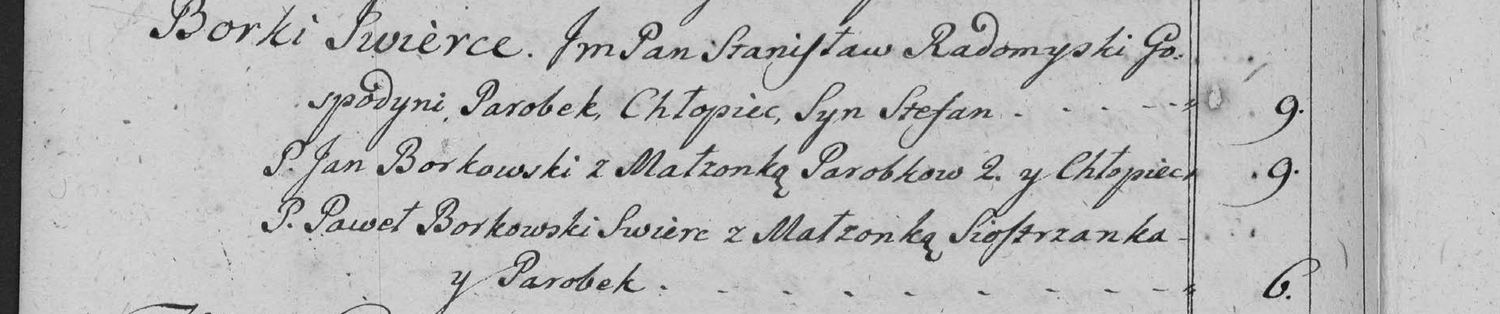 Borki Swierce. Jm Pan Stanisław Radomyski Go:
spodyni, Parobek, Chłopiec, Syn Stefan . . . . . " 9.
P. Jan Borkowski z Małzonką Parobkow 2. y Chłopiec " . 9.
P. Paweł Borkowski Swierc z Małzonką Siostrzanka
y Parobek . . . . . . . . . . " 6.